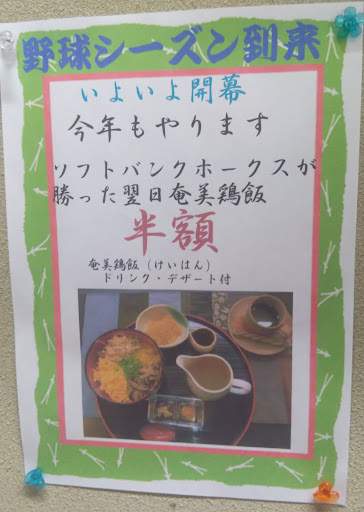 野球シーズン到来
いよいよ開幕
今年もやります
ソフトバンクホークスが
勝った翌日奄美鶏飯
半額
奄美鶏飯（けいはん）
ドリンク・デザート付